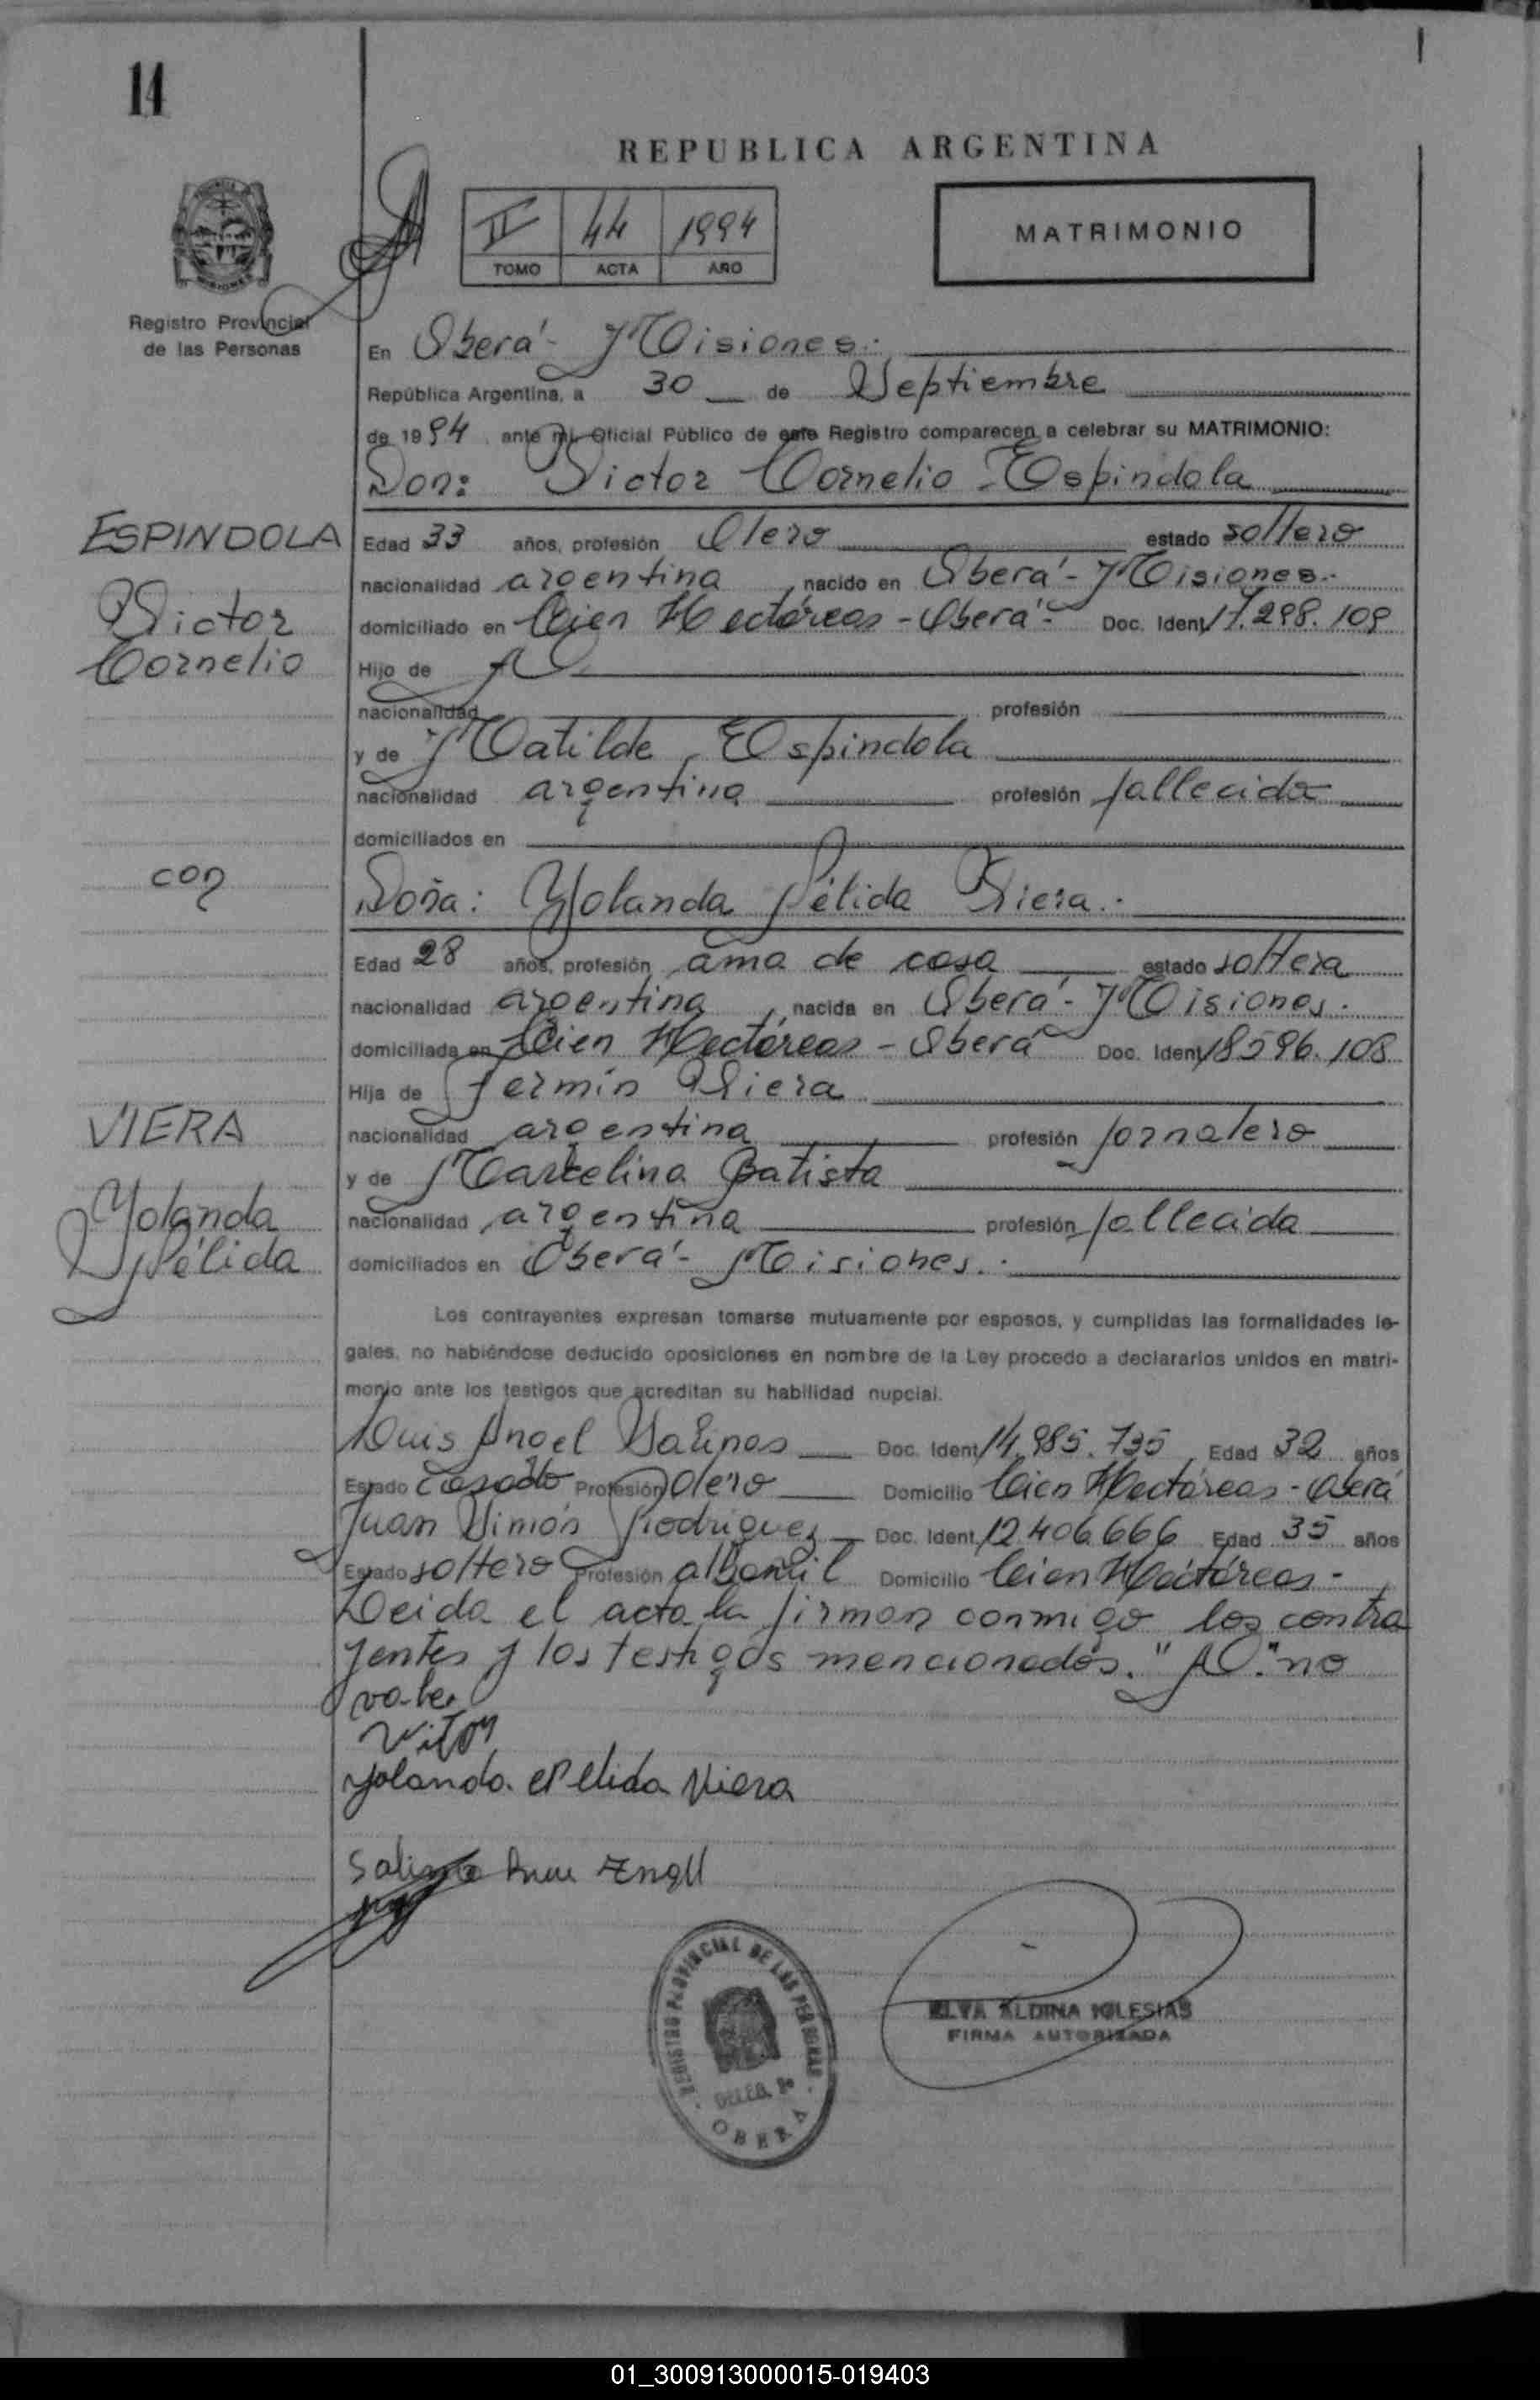 14
REPUBLICA ARGENTINA
II 44 1994
TOMO ACTA AÑO
MATRIMONIO
Registro Provincial
de las Personas
En Oberá - Misiones.-
República Argentina, a 30 de Septiembre
de 1994, ante mi, Oficial Público de este Registro comparecen a celebrar su MATRIMONIO:
Don: Victor Cornelio Espindola
ESPINDOLA
Victor
Cornelio
Edad 33 años, profesión Olero estado soltero
nacionalidad argentina, nacido en Oberá - Misiones.-
domiciliado en Cien Hectáreas - Oberá - Doc. Ident. 17.298.109
Hijo de
nacionalidad profesión
y de Matilde Espindola
nacionalidad argentina profesión fallecida
domiciliados en
con
Doña: Yolanda Nélida Viera.-
Edad 28 años, profesión ama de casa estado soltera
nacionalidad argentina, nacida en Oberá - Misiones.
domiciliada en Cien Hectáreas - Oberá Doc. Ident. 18596.108
Hija de Fermín Viera
VIERA
Yolanda
Nélida
nacionalidad argentina profesión jornalero
y de Marcelina Batista
nacionalidad argentina profesión fallecida
domiciliados en Oberá - Misiones.-
Los contrayentes expresan tomarse mutuamente por esposos, y cumplidas las formalidades le-
gales, no habiéndose deducido oposiciones en nombre de la Ley procedo a declararlos unidos en matri-
monio ante los testigos que acreditan su habilidad nupcial.
Luis Angel Salinas Doc. Ident. 14.985.735 Edad 32 años
Estado casado Profesión Olero Domicilio Cien Hectáreas - Oberá
Juan Simón Rodriguez Doc. Ident. 12.406.666 Edad 35 años
Estado soltero Profesión albañil Domicilio Cien Hectáreas -
Leida el acta la firman conmigo los contra
yentes y los testigos mencionados. " " no
vale.
Vitor
Yolanda Nelida Viera
Salinas Angel
REGISTRO PROVINCIAL DE LAS PERSONAS
DELEG. 2ª
OBERA
ELVA ALDINA IGLESIAS
FIRMA AUTORIZADA
01_300913000015-019403